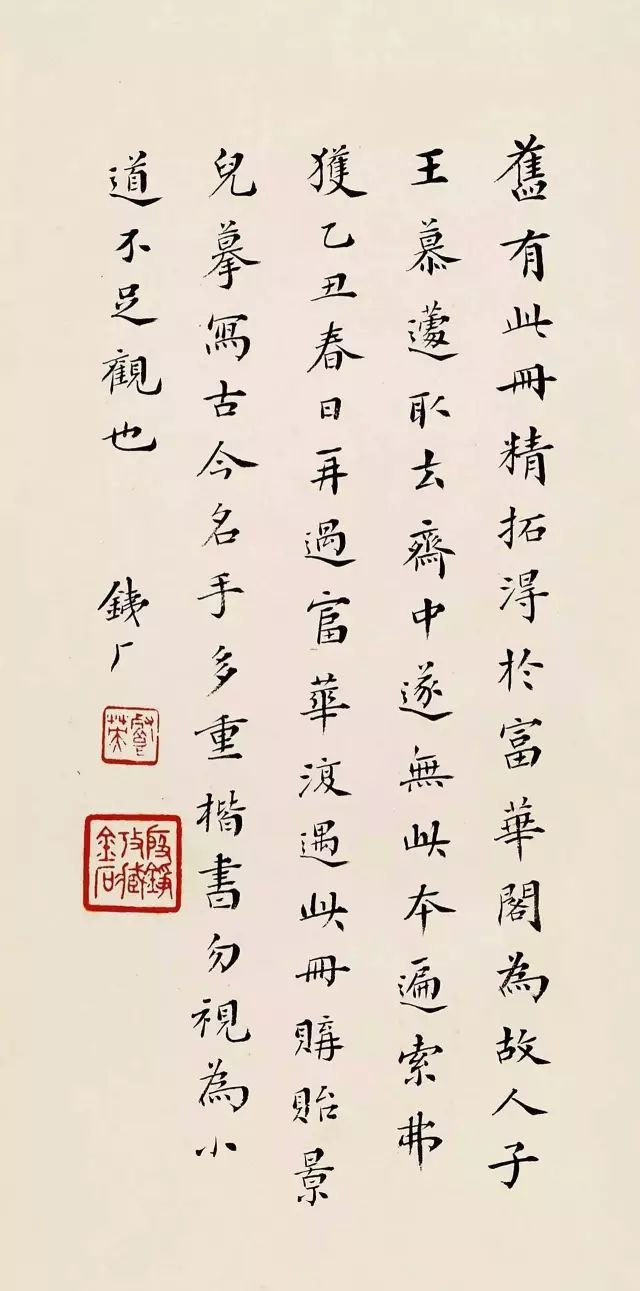 舊有此冊精拓淂於富華閣為故人子
王慕蘧取去齋中遂無此本遍索弗
獲乙丑春日再過富華復遇此冊購貽景
兒摹寫古今名手多重楷書勿視為小
道不足觀也 銕厂